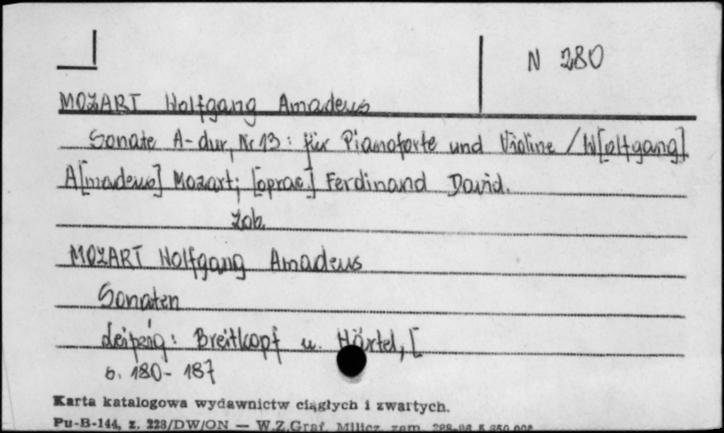 N 280
MOZART Wolfgang Amadeus
Sonate A-dur, Nr 13 : für Pianoforte und Violine / W[olfgang]
A[madeus] Mozart ; [oprac.] Ferdinand David.
Zob.
MOZART Wolfgang Amadeus
Sonaten
Leipzig : Breitkopf u. Härtel, [
s. 180-187
Karta katalogowa wydawnictw ciągłych i zwartych.
Pu-B-144, z. 223/DW/ON — W.Z.Graf. Milicz, zam.